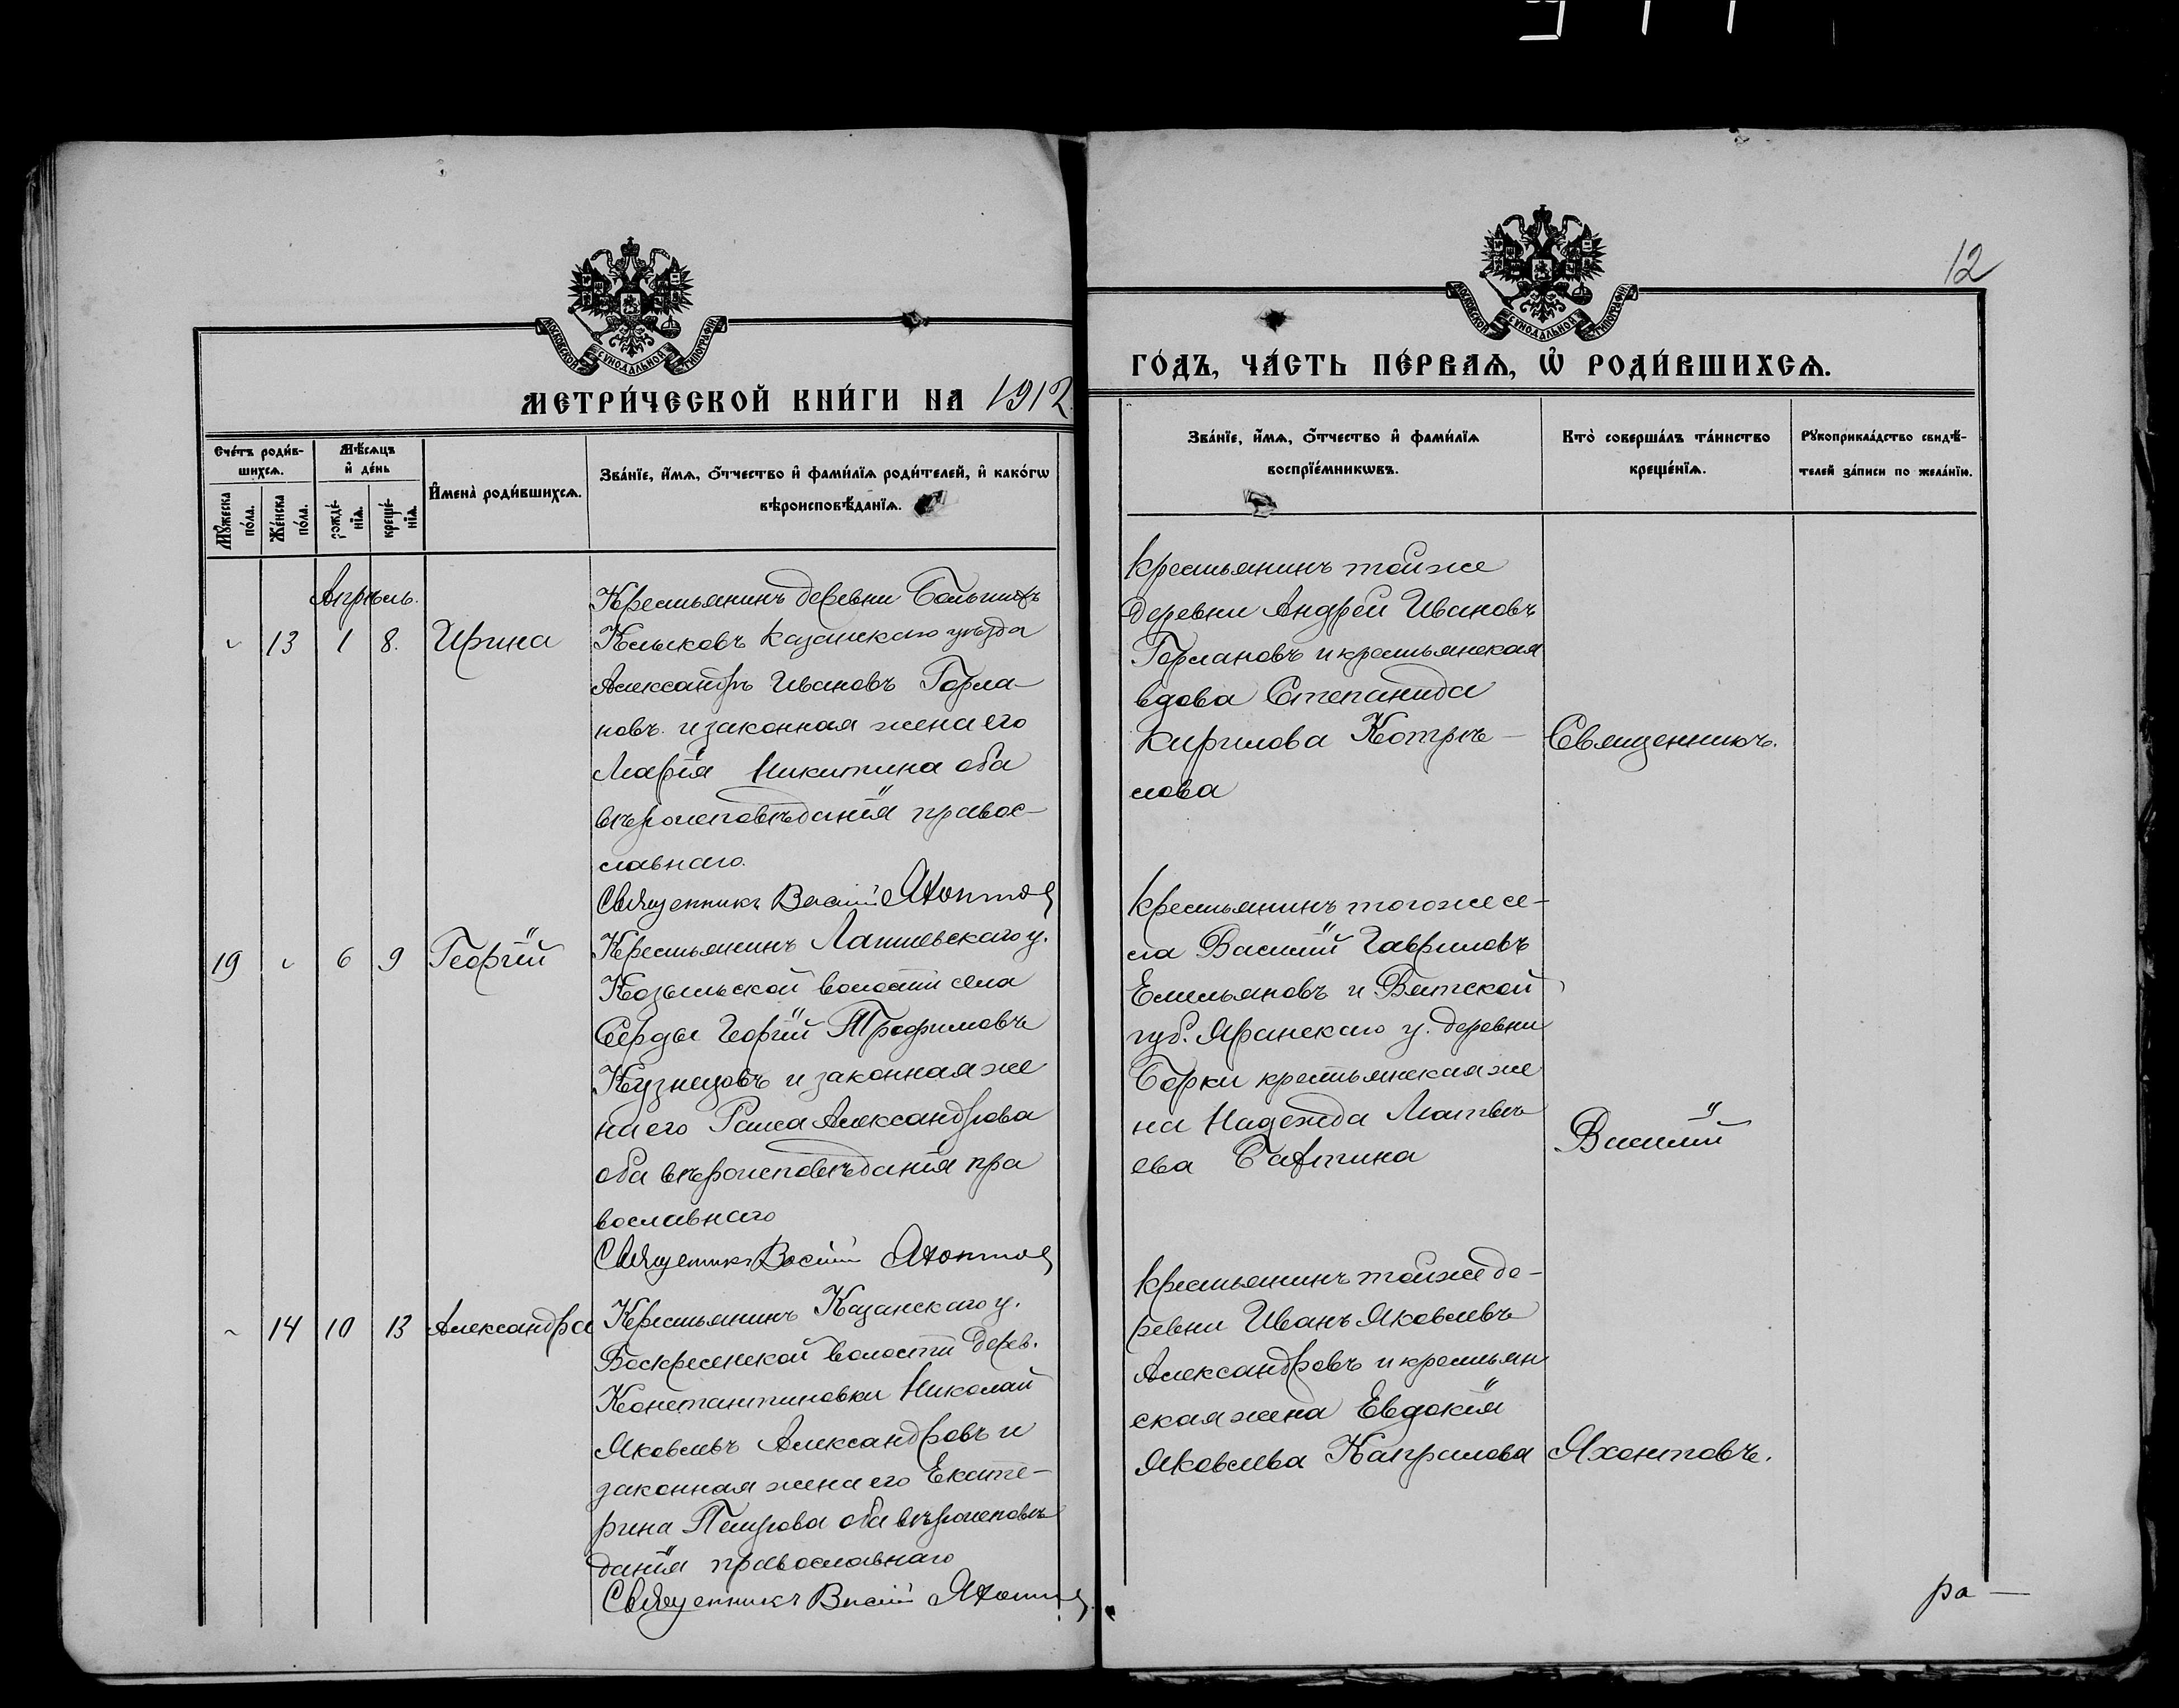 12
МОСКОВСКОЙ СУНОДАЛЬНОЙ ТИПОГРАФІИ
МОСКОВСКОЙ СУНОДАЛЬНОЙ ТИПОГРАФІИ
МЕТРИ́ЧЕСКОЙ КНИ́ГИ НА 1912
ГО́ДЪ, ЧА́СТЬ ПЕ́РВАѦ, Ѡ҆ РОДИ́ВШИХСѦ.
Сче́тъ роди́в-
шихсѧ.
Мꙋ́жеска по́ла.
Же́нска по́ла.
Мѣ́сѧцъ
и҆ де́нь
рожде́-
нїѧ.
креще́-
нїѧ.
И҆мена̀ роди́вшихсѧ.
Зва́нїе, и҆́мѧ, ѻ҆́тчество и҆ фами́лїѧ роди́телей, и҆ како́гѡ
вѣроисповѣ́данїѧ.
Зва́нїе, и҆́мѧ, ѻ҆́тчество и҆ фами́лїѧ
воспрїе́мникѡвъ.
Кто̀ соверша́лъ та́инство
креще́нїѧ.
Рꙋкоприкла́дство свидѣ́-
телей за́писи по жела́нїю.
Апрѣль.
13 1 8. Ирина
Крестьянинъ деревни Большихъ
Клыковъ Казанскаго уѣзда
Александръ Ивановъ Горла-
новъ и законная жена его
Марія Никитина оба
вѣроисповѣданія правос-
лавнаго.
Священникъ Василій Яхонтов
крестьянинъ тойже
деревни Андрей Ивановъ
Горлановъ и крестьянская
вдова Степанида
Кирилова Котрѣ-
лова
Священникъ.
19 6 9 Георгій
Крестьянинъ Лаишевскаго у.
Козыльской волости села
Серды Георгій Трофимовъ
Кузнецовъ и законная же
на его Раиса Александрова
оба вѣроисповѣданія пра
вославнаго
Священникъ Василій Яхонтов
крестьянинъ тогоже се-
ла Василій Гавриловъ
Емельяновъ и Вятской
губ. Яранскаго у. деревни
Борки крестьянская же
на Надежда Матвѣ
ева Бахтина
Василій
14 10 13 Александра
Крестьянинъ Казанскаго у.
Воскресенской волости дерев.
Константиновки Николай
Яковлевъ Александровъ и
законная жена его Екате-
рина Петрова оба вѣроисповѣ
данія православнаго
Священникъ Василій Яхонтов
крестьянинъ тойже де-
ревни Иванъ Яковлевъ
Александровъ и крестьян
ская жена Евдокія
Яковлева Капралова
Яхонтовъ.
ра —